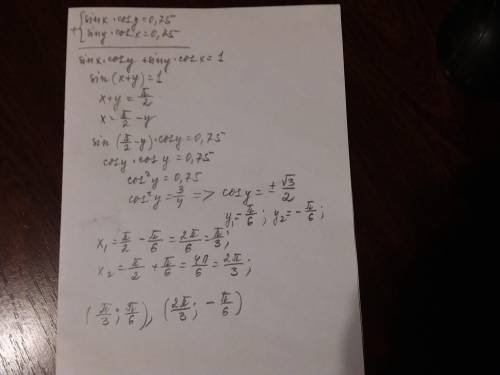 {sinx·cosy=0,75
+{siny·cosx=0,25
sinx·cosy+siny·cosx=1
sin(x+y)=1
x+y=π/2
x=π/2-y
sin(π/2-y)·cosy=0,75
cosy·cosy=0,75
cos²y=0,75
cos²y=3/4 => cosy=±√3/2
y₁=π/6; y₂=-π/6;
x₁=π/2-π/6=2π/6=π/3;
x₂=π/2+π/6=4π/6=2π/3;
(π/3;π/6), (2π/3;-π/6)